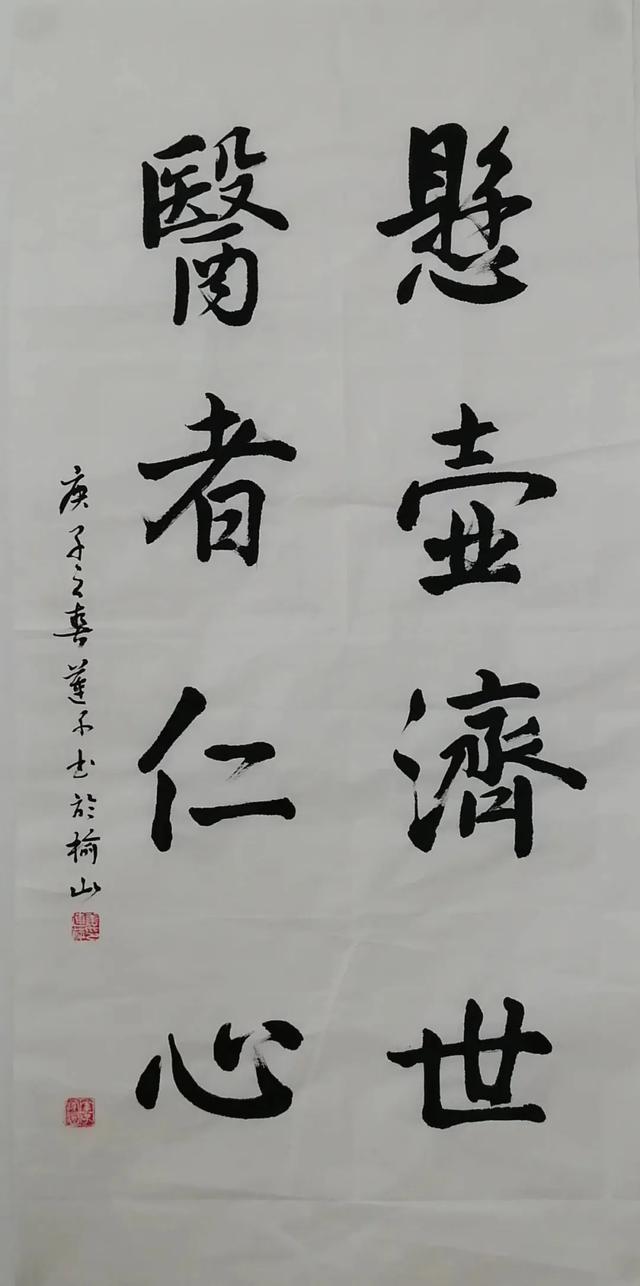 懸壺濟世
醫者仁心
庚子之春蓮子书於榆山